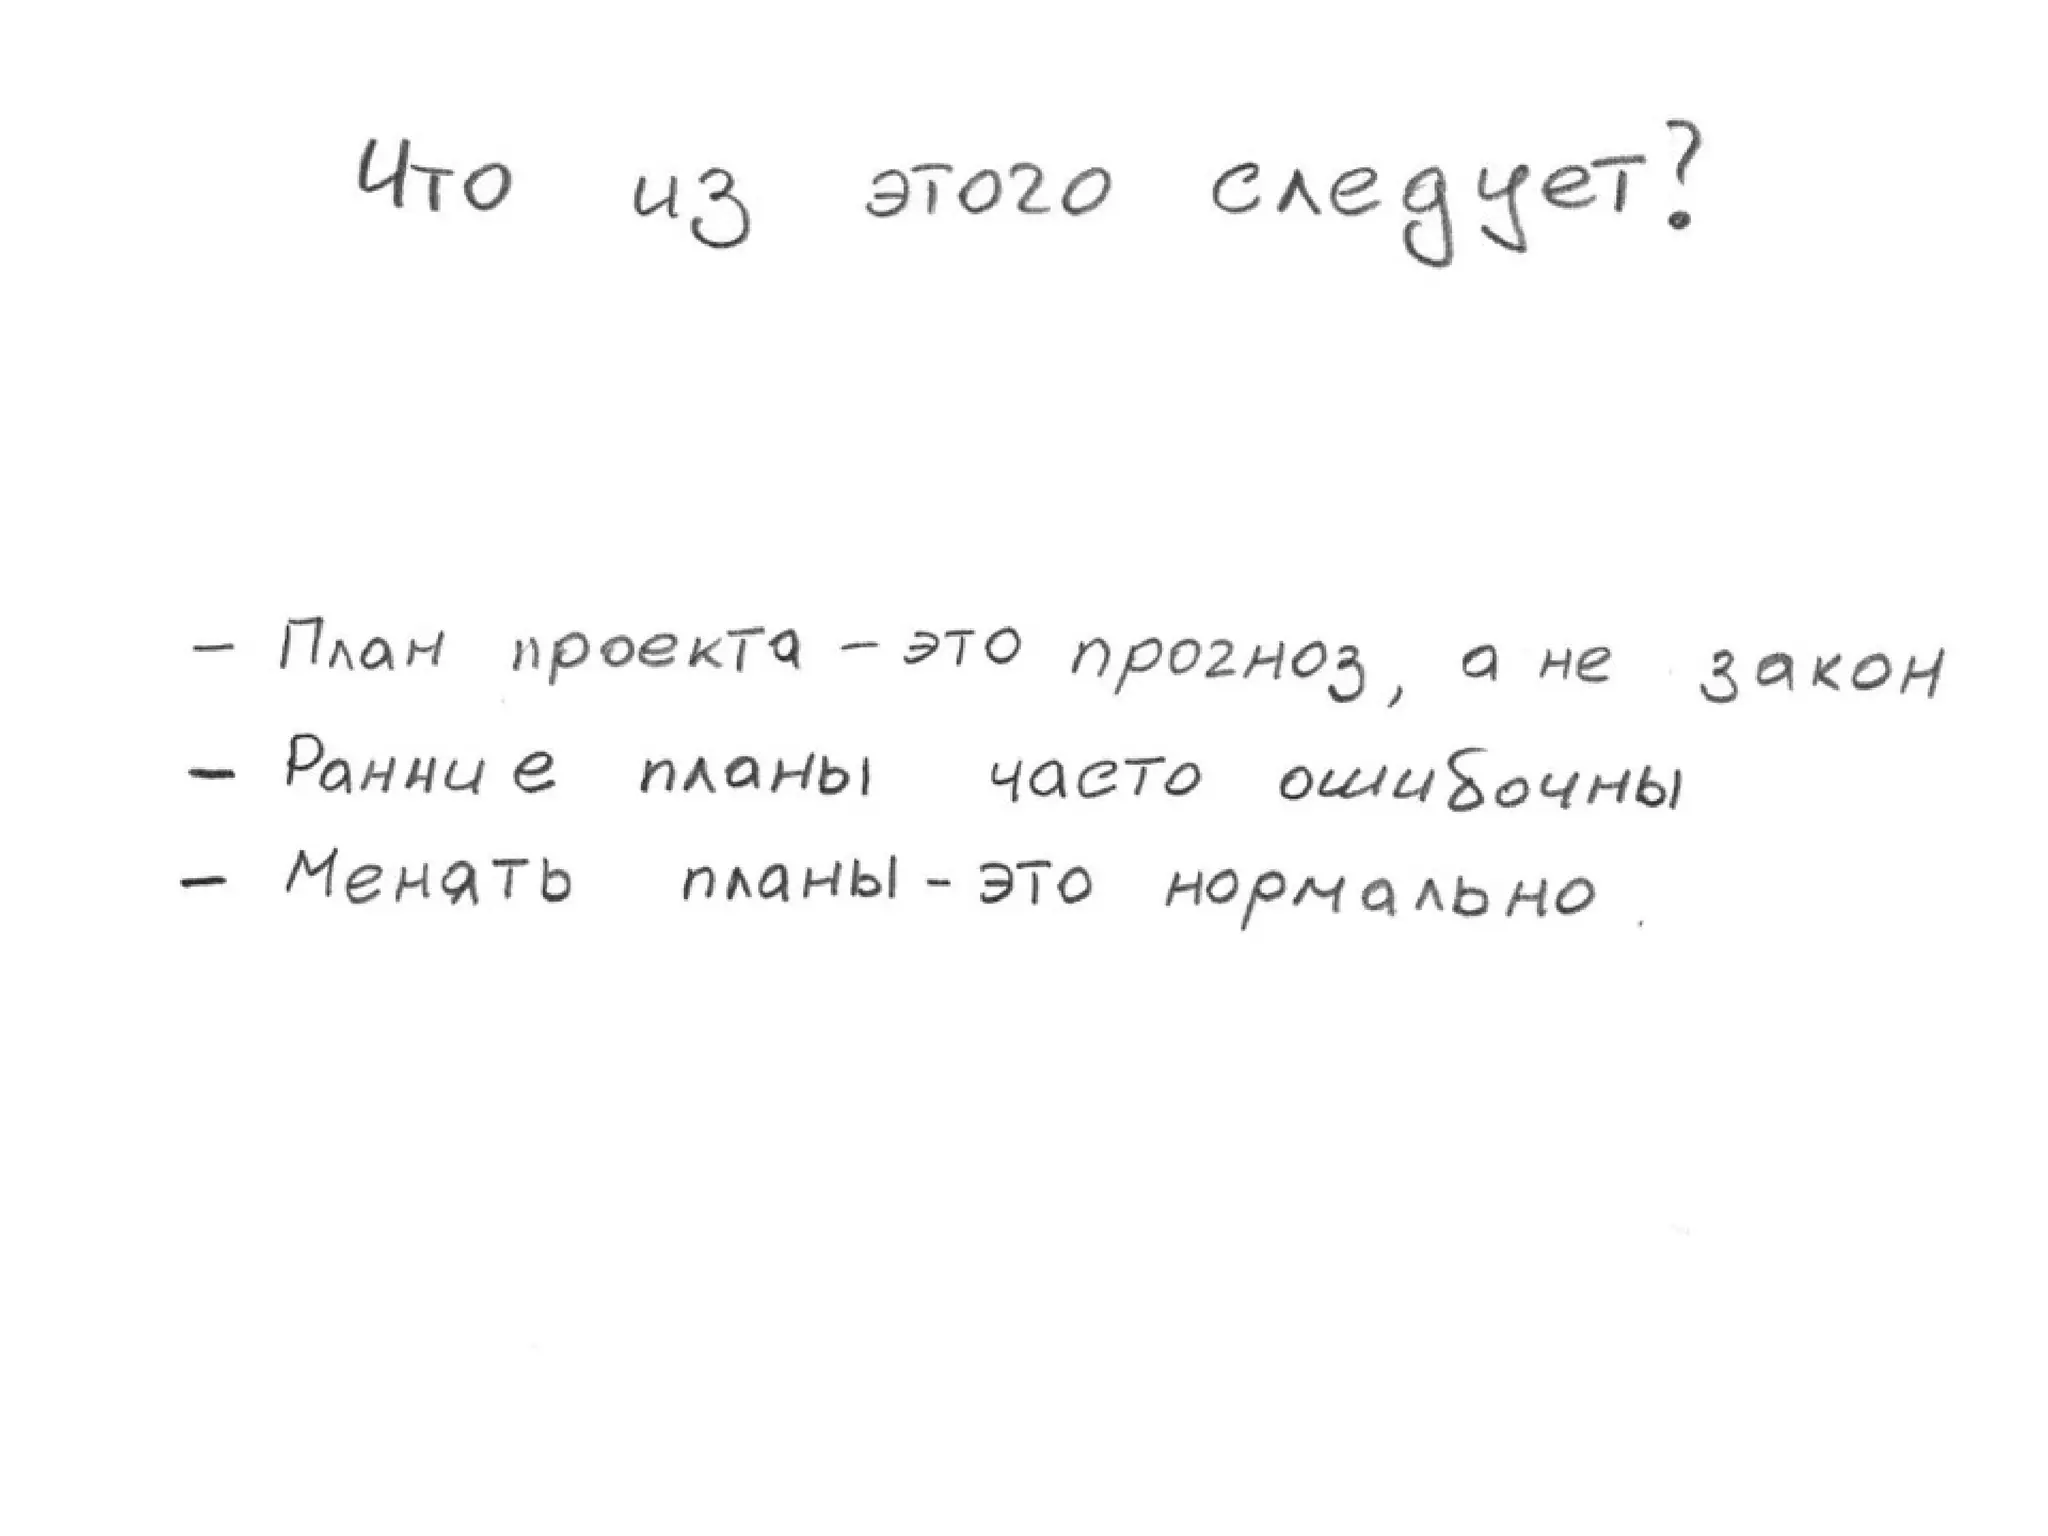 Что из этого следует?
- План проекта - это прогноз, а не закон
- Ранние планы часто ошибочны
- Менять планы - это нормально.